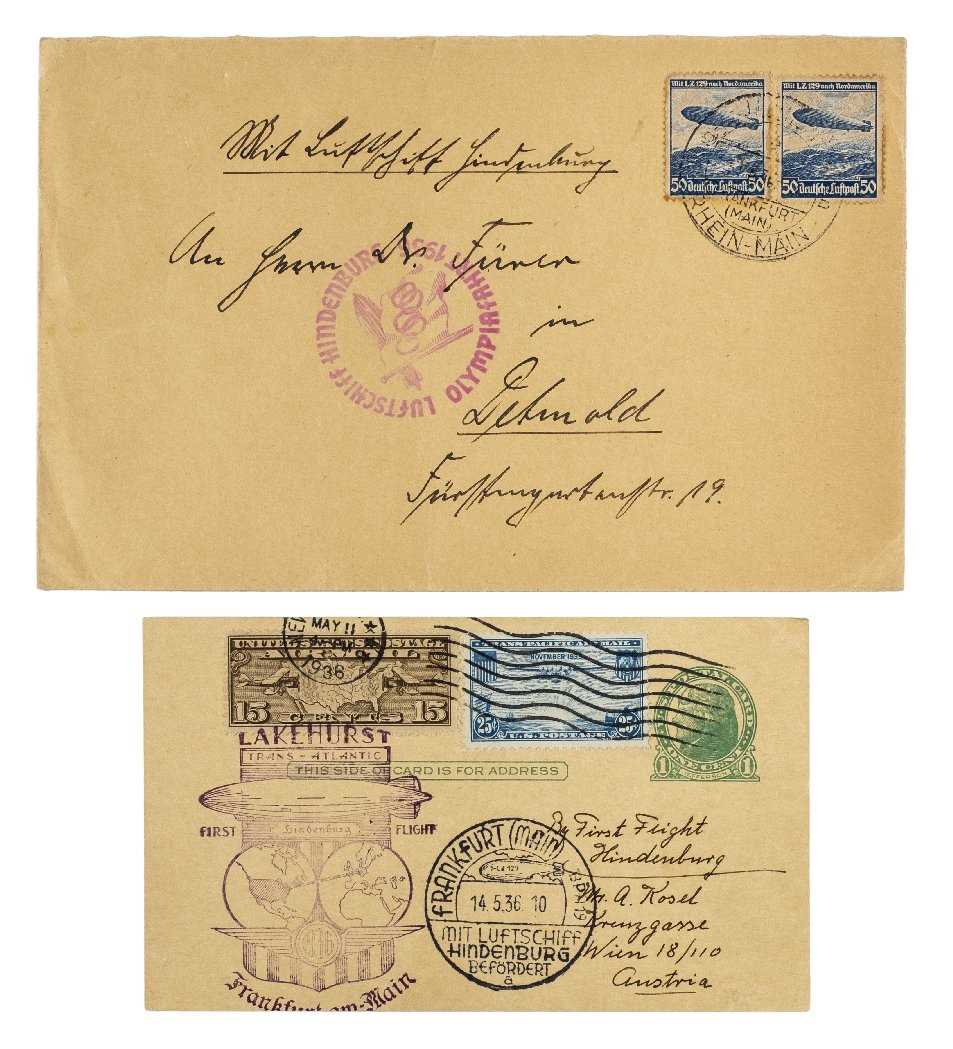 Mit LZ 129 nach Nordamerika
Mit LZ 129 nach Nordamerika
50 Deutsche Luftpost 50
50 Deutsche Luftpost 50
FRANKFURT
(MAIN)
RHEIN-MAIN
Mit Luftschiff Hindenburg
An Herrn Dr. Fürer
in
Detmold
Fürstengartenstr. 19.
LUFTSCHIFF HINDENBURG
OLYMPIAFAHRT 1936
MAY 11
1936
UNITED STATES POSTAGE
15 15
TRANS-PACIFIC AIR MAIL
NOVEMBER 1935
25¢ 25¢
U.S. POSTAGE
1 ONE CENT 1
JEFFERSON
THIS SIDE OF CARD IS FOR ADDRESS
LAKEHURST
TRANS-ATLANTIC
FIRST Hindenburg FLIGHT
Frankfurt am-Main
FRANKFURT (MAIN)
LZ 129
14.5.36. 10
MIT LUFTSCHIFF
HINDENBURG
BEFÖRDERT
a
By First Flight
Hindenburg
A. Kosel
Kreuzgasse
Wien 18/110
Austria